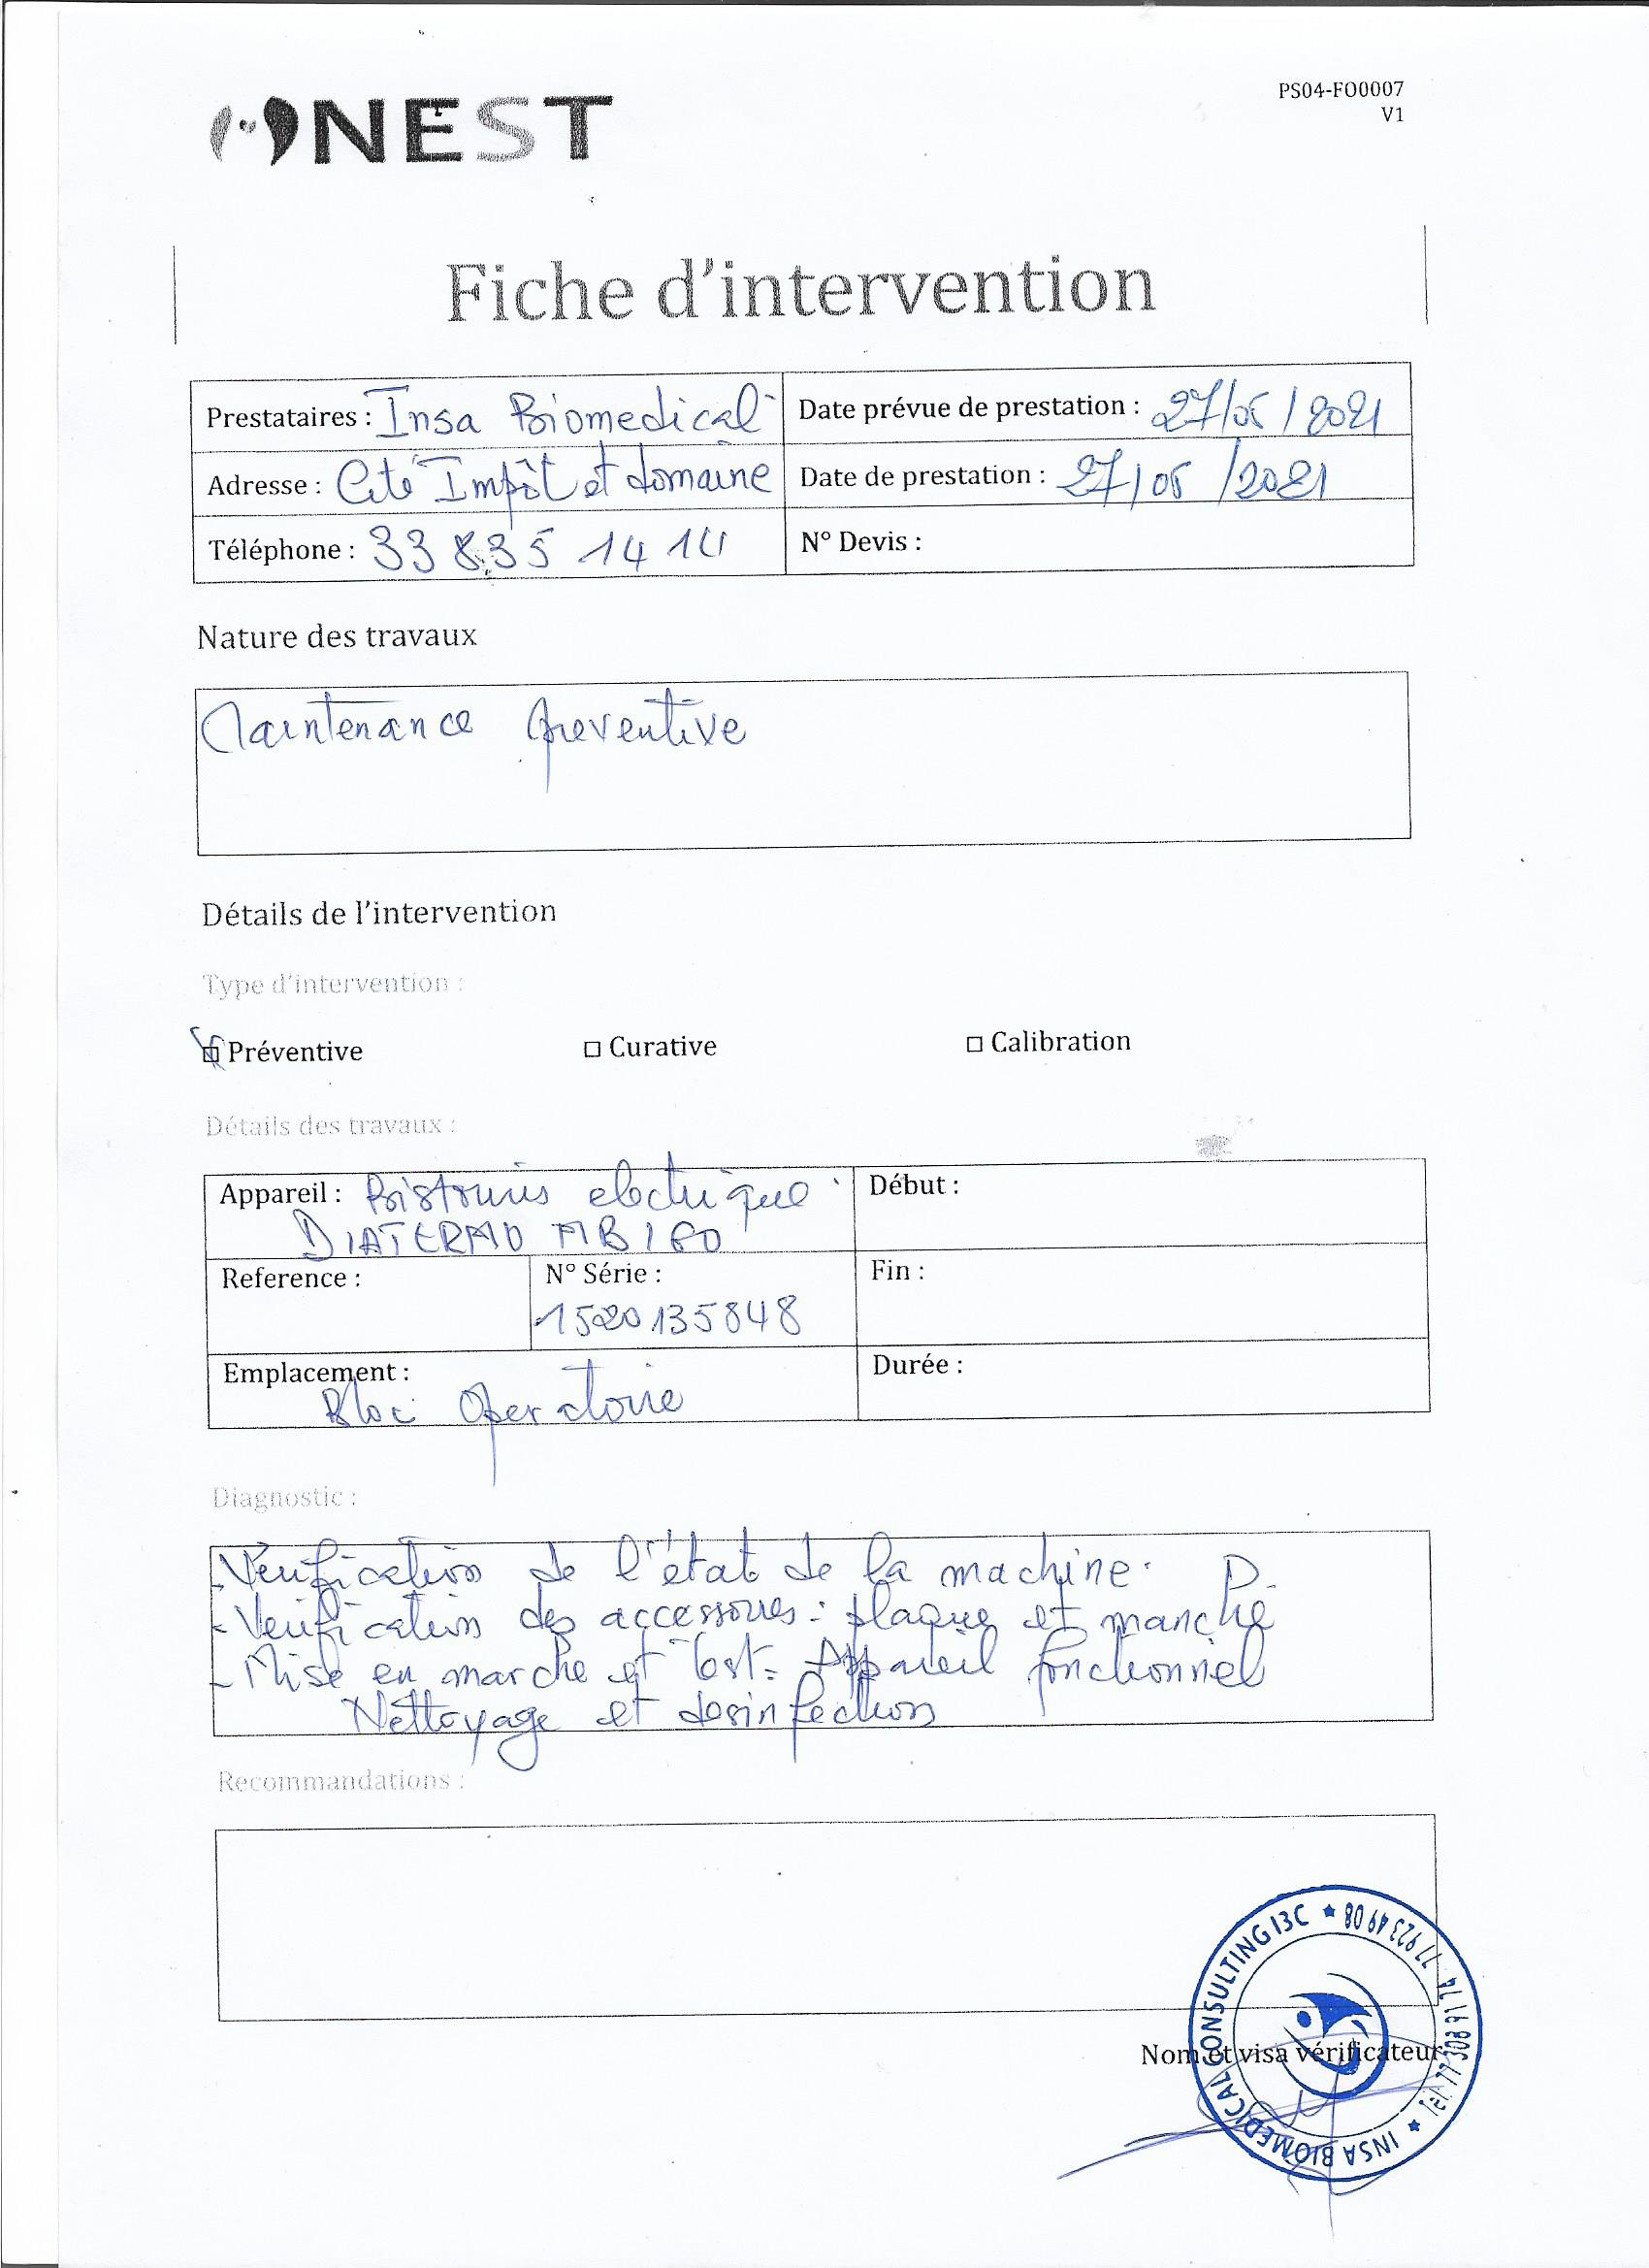 NEST
PS04-FO0007
V1
Fiche d'intervention
Prestataires : Insa Biomedical
Date prévue de prestation : 27/05/2021
Adresse : Cité Impôt et domaine
Date de prestation : 27/05/2021
Téléphone : 33 835 14 14
N° Devis :
Nature des travaux
Maintenance preventive
Détails de l'intervention
Type d'intervention :
Préventive
Curative
Calibration
Détails des travaux :
Appareil : Bistouris electrique
DIATERMO MB160
Début :
Reference :
N° Série :
1520135848
Fin :
Emplacement :
Bloc Operatoire
Durée :
Diagnostic :
- Verification de l'état de la machine.
- Verification des accessoires : plaque et manche
- Mise en marche et test. Appareil fonctionnel
Nettoyage et desinfection
Recommandations :
Nom et visa vérificateur
INSA BIOMEDICAL CONSULTING I3C ★ 77 923 49 08
Tél: 77 308 91 74